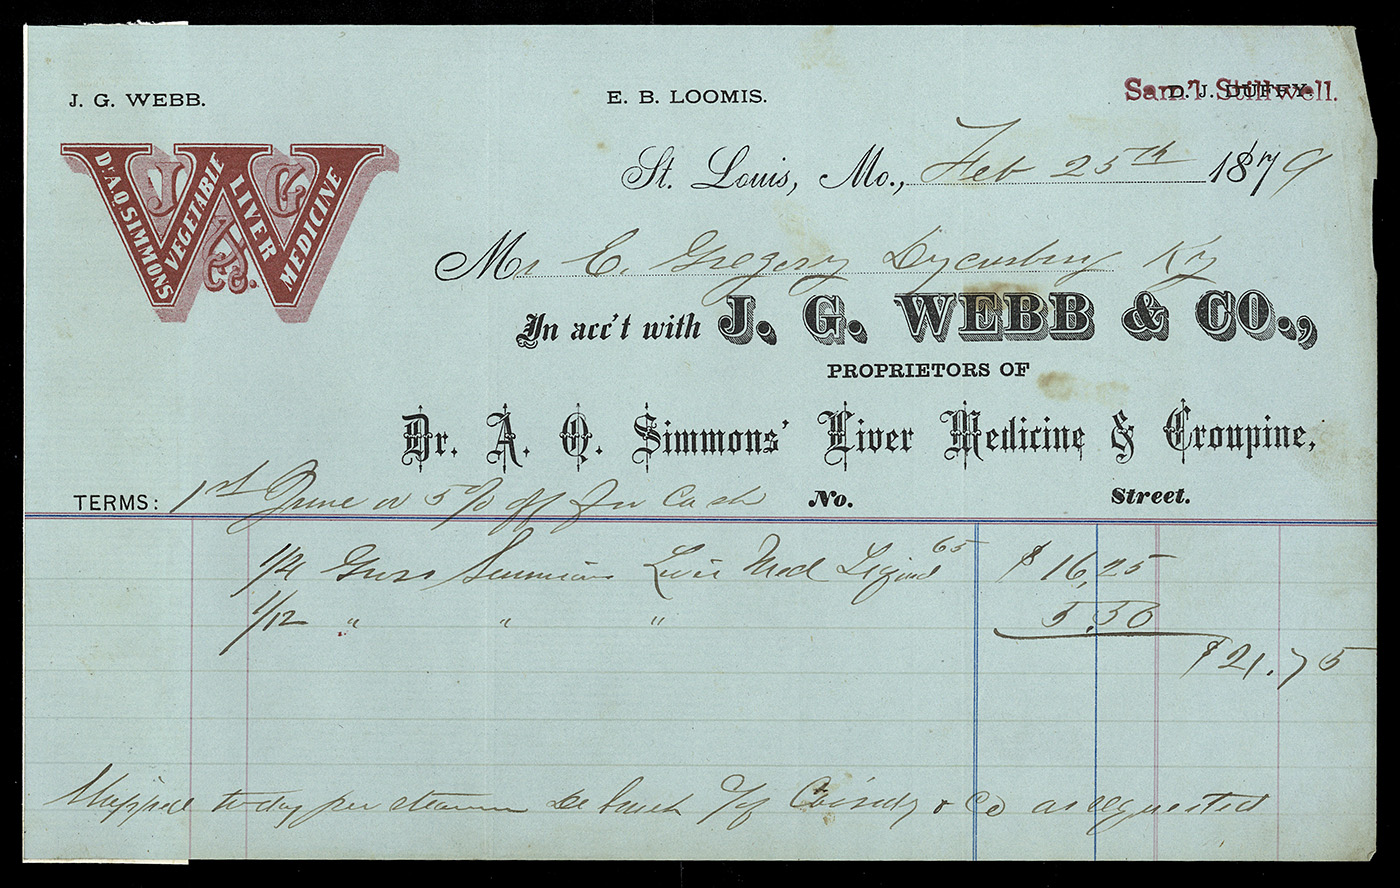 J. G. WEBB. E. B. LOOMIS. Sam'l Stillwell.
D. J. DUFFY.
Dr. A. Q. SIMMONS VEGETABLE LIVER MEDICINE
J G & Co.
St. Louis, Mo., Feb 25th 1879
Mr C. Gregory Dycusburg Ky
In acc't with J. G. WEBB & CO.,
PROPRIETORS OF
Dr. A. Q. Simmons' Liver Medicine & Croupine,
TERMS: 1st June or 5% off for Cash No. Street.
1/4 Gross Simmons Liver Med Liquid 65 $ 16,25
1/12 " " " 5.50
$21.75
Shipped today per steamer c/o & Co as requested